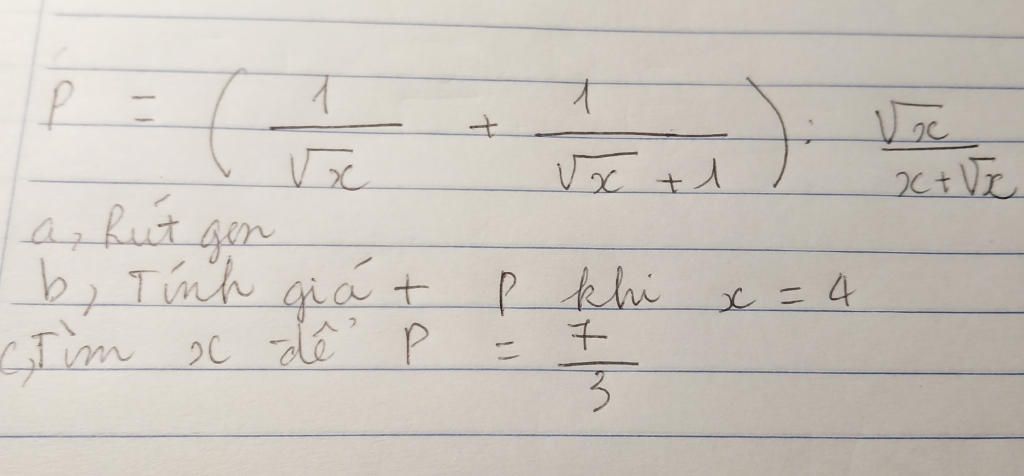 P = ( 1/√x + 1/(√x + 1) ) : √x/(x+√x)
a, Rút gọn
b, Tính giá t P khi x = 4
c, Tìm x để P = 7/3